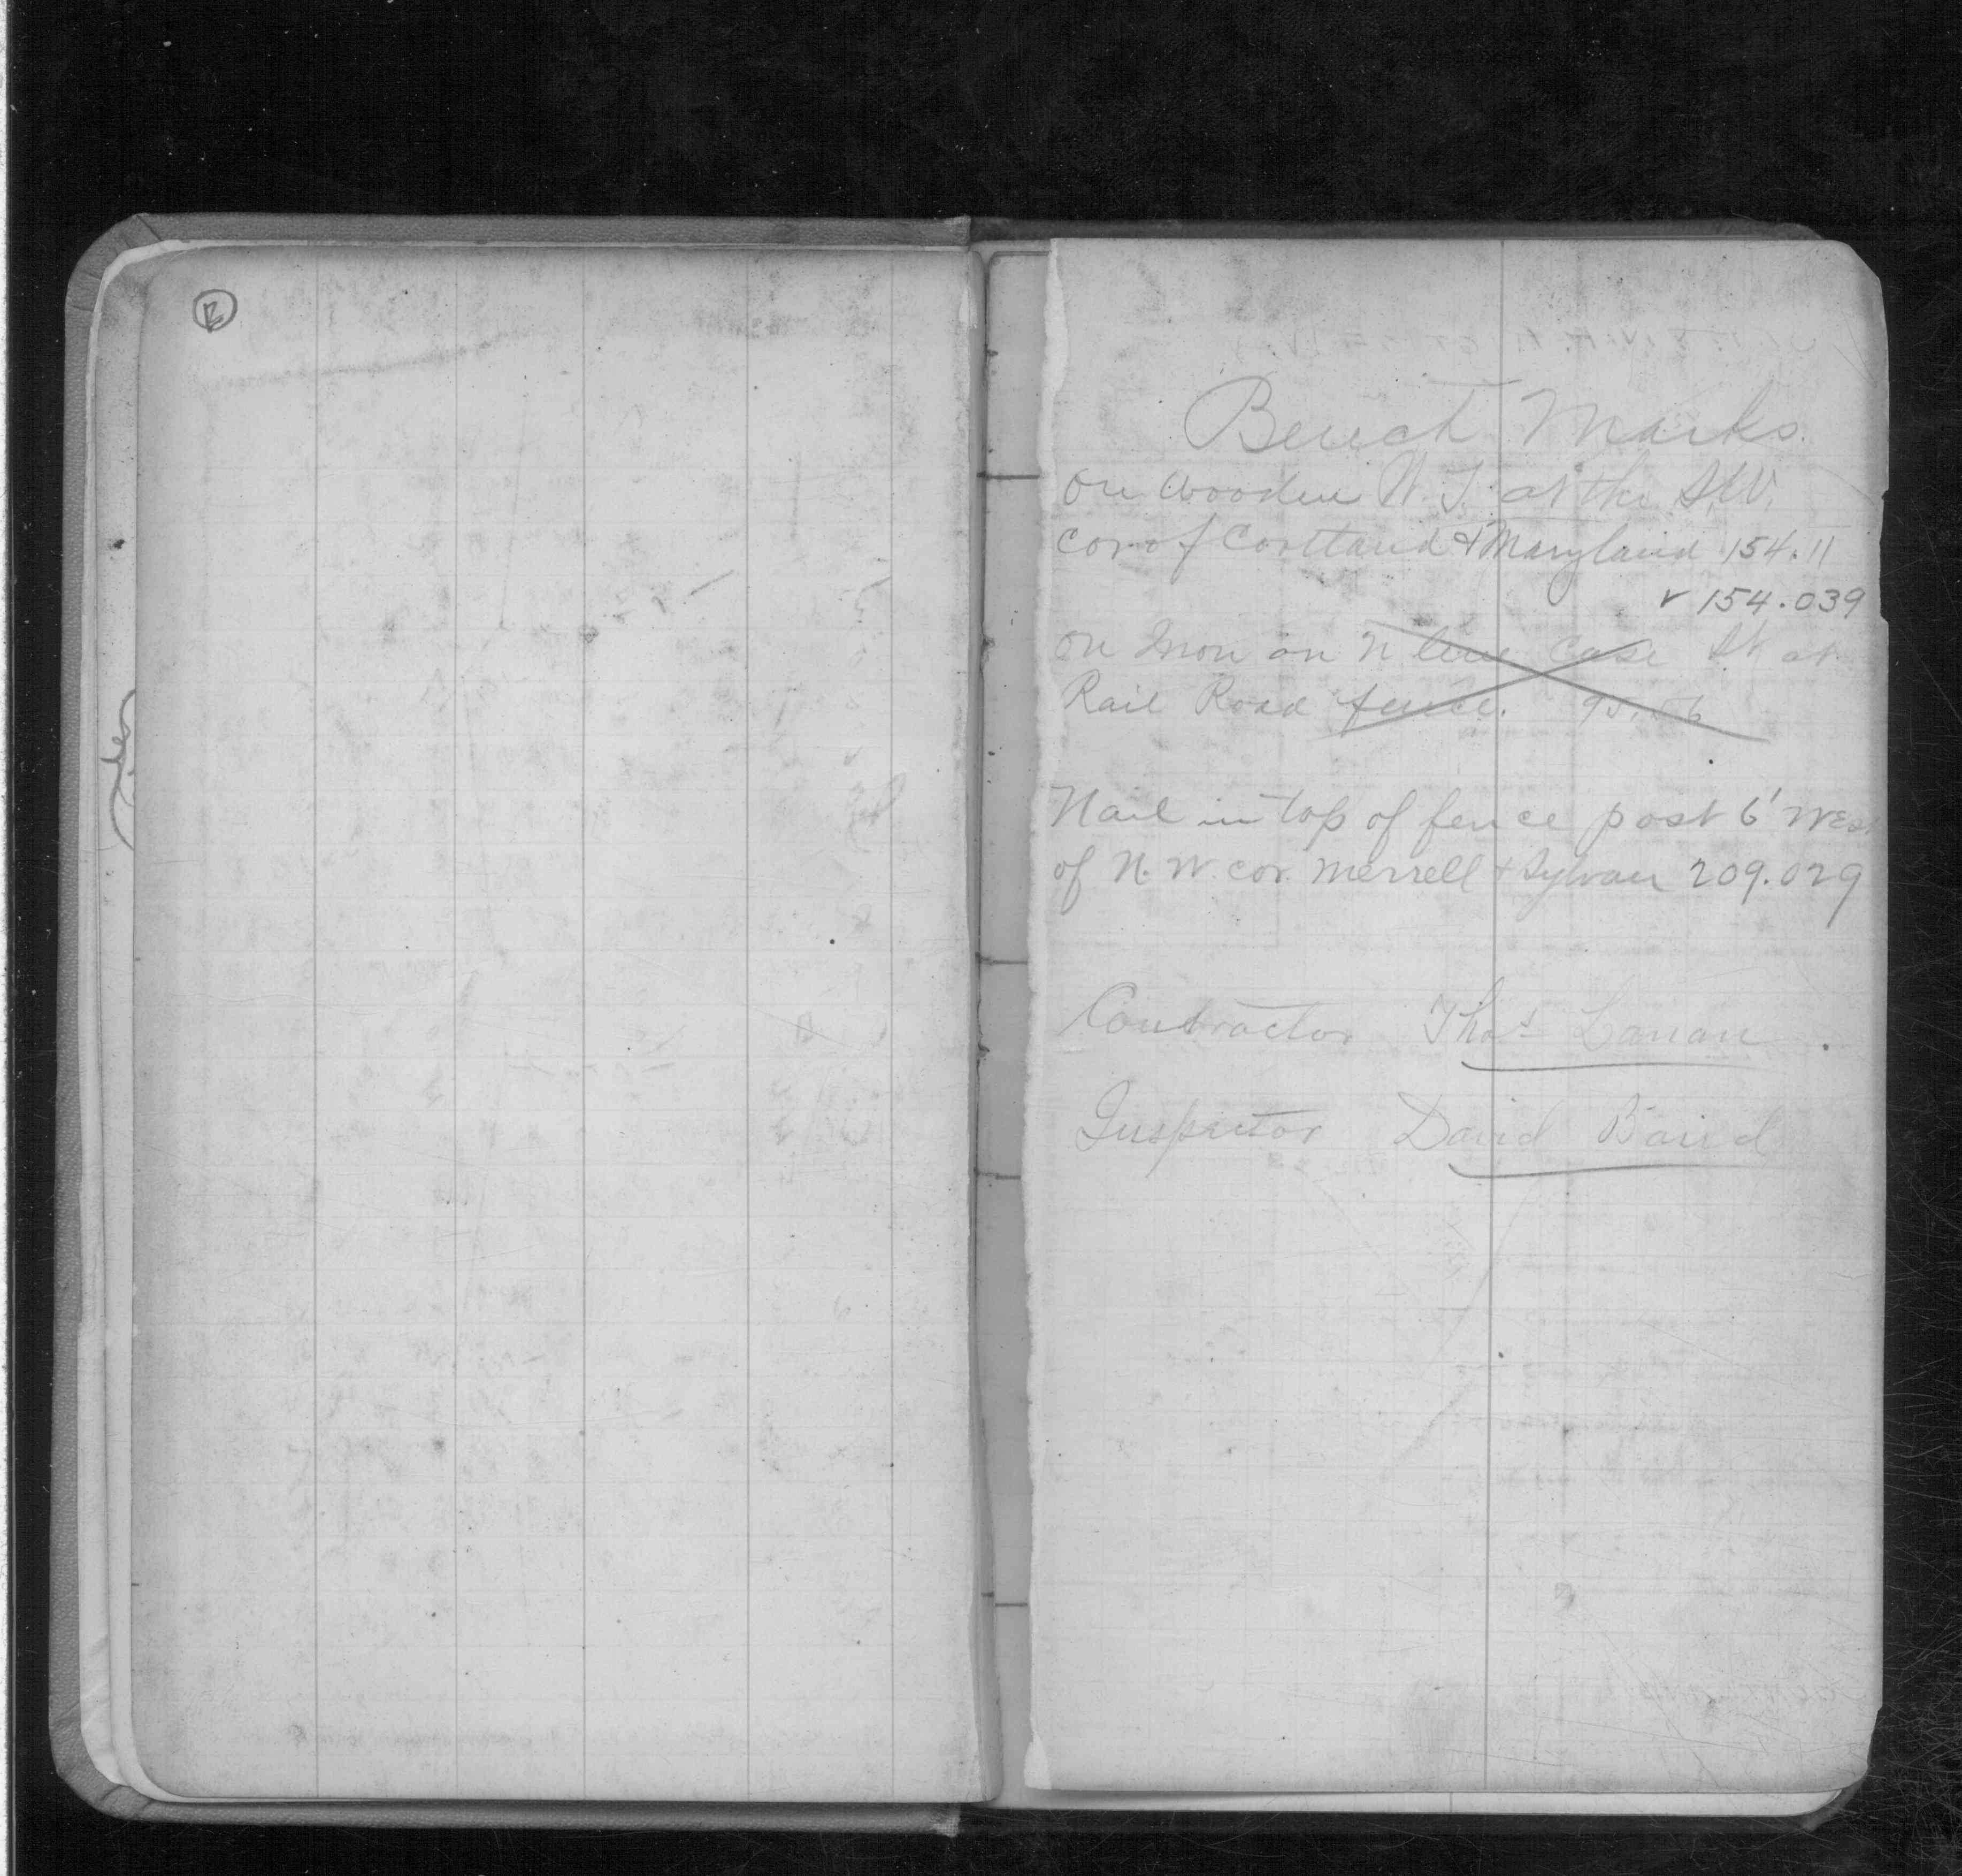 Bench Marks
On Wooden W.T. at the S.W.
cor of Cortland & Maryland 154.11
✓ 154.039
On Iron on N line Case St at
Rail Road fence. 95.56
Nail in top of fence post 6' West
of N.W. cor. Merrell + Sylvan 209.029
Contractor Thos Lanan
Inspector David Baird